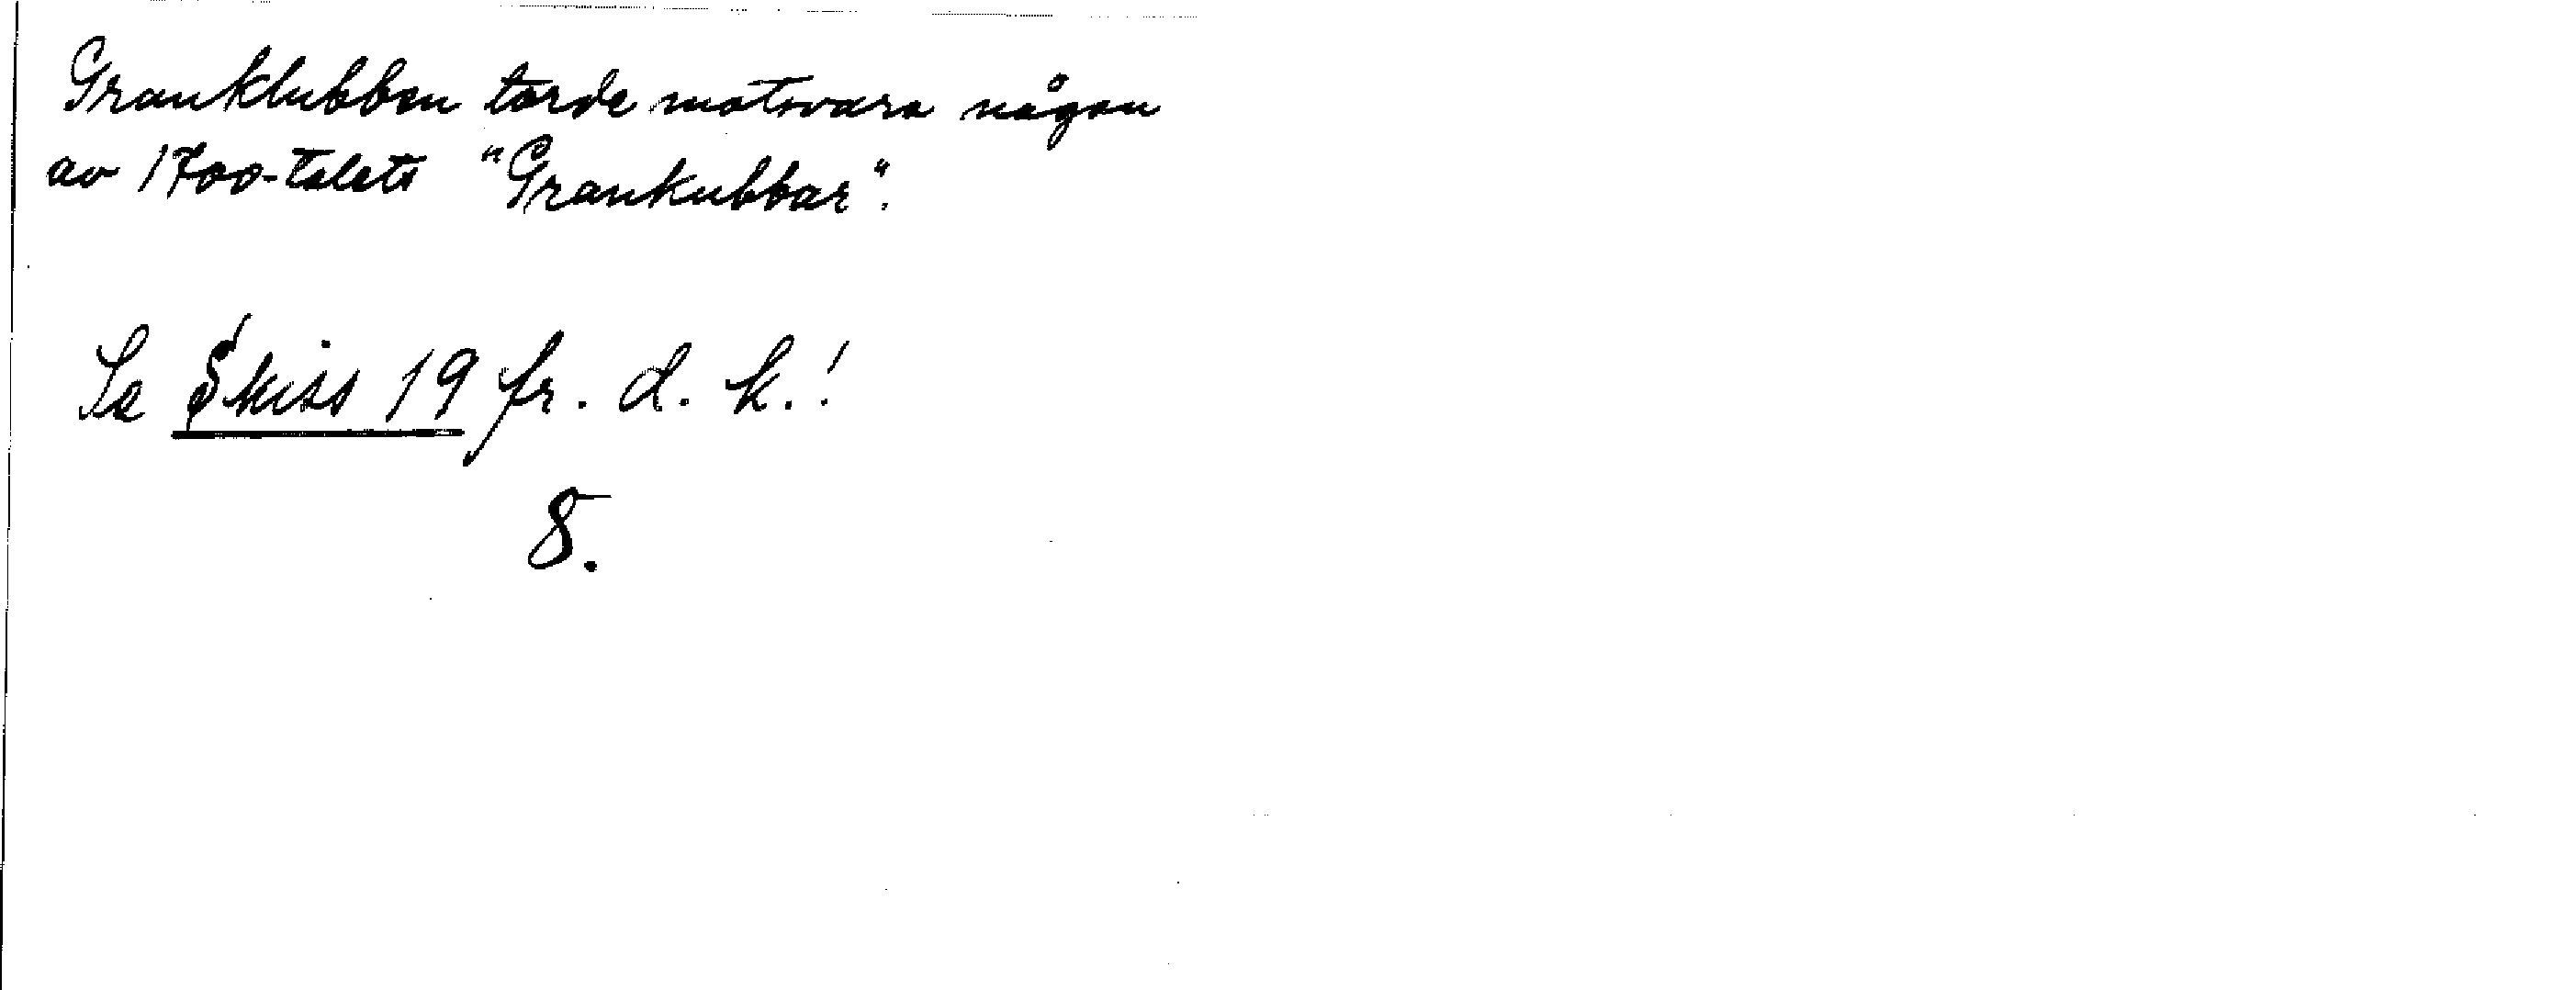 Granklubben torde motsvara någon
av 1700-talets "Grankubbar".
Se Skiss 19 fr. d. k.!
8.